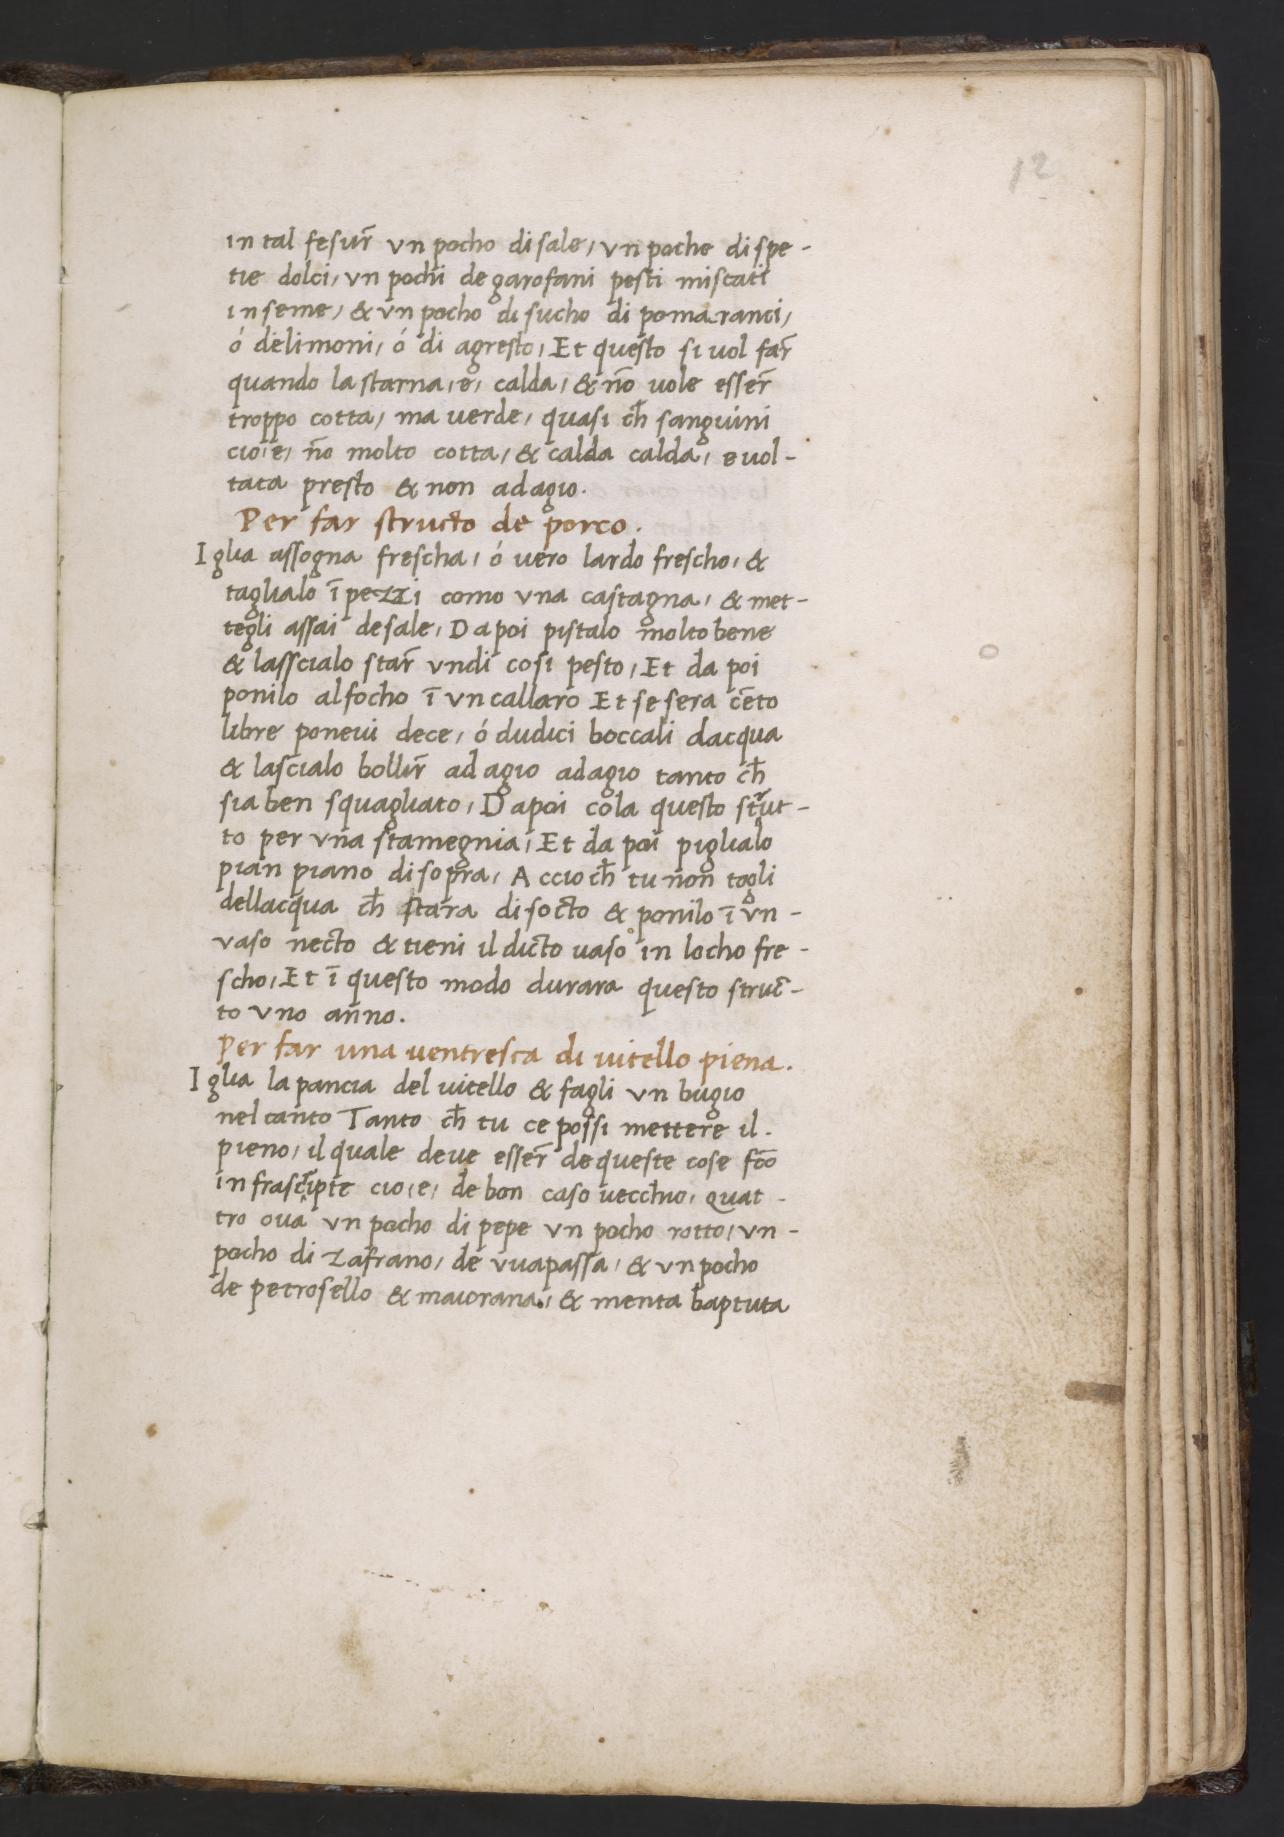 12
in tal fesur̃ vn pocho di sale, vn poche di spe-
tie dolci, vn pochi de garofani pesti miscati
inseme, & vn pocho di sucho di pomaranci,
ó delimoni, ó di agresto, Et questo si uol far̃
quando la starna, e, calda, & nõ uole esser̃
troppo cotta, ma uerde, quasi ch̃ sanguini
cio, e, nõ molto cotta, & calda calda, e uol-
tata presto & non adagio.
Per far structo de porco.
Iglia assogna frescha, ó uero lardo frescho, &
taglialo ĩ pezzi como vna castagna, & met-
tegli assai de sale, Dapoi pistalo molto bene
& lasscialo star̃ vndi cosi pesto, Et da poi
ponilo al focho ĩ vn callaro Et se sera cẽto
libre poneui dece, ó dudici boccali dacqua
& lascialo bollir̃ adagio adagio tanto ch̃
sia ben squagliato, Dapoi cola questo strut-
to per vna stamegnia, Et da poi piglialo
pian piano di sopra, Accio ch̃ tu non togli
dellacqua ch̃ stara di socto & ponilo ĩ vn-
vaso necto & tieni il dicto uaso in locho fre-
scho, Et ĩ questo modo durara questo struc-
to vno anno.
Per far una uentresca di uitello piena.
Iglia la pancia del uitello & fagli vn bugio
nel canto Tanto ch̃ tu ce possi mettere il.
pieno, il quale deue esser̃ de queste cose fc̃o
infrascripte cio, e, de bon caso uecchio, quat-
tro oua vn pocho di pepe vn pocho rotto, vn-
pocho di zafrano, de vuapassa, & vn pocho
de petrosello & maiorana, & menta baptuta